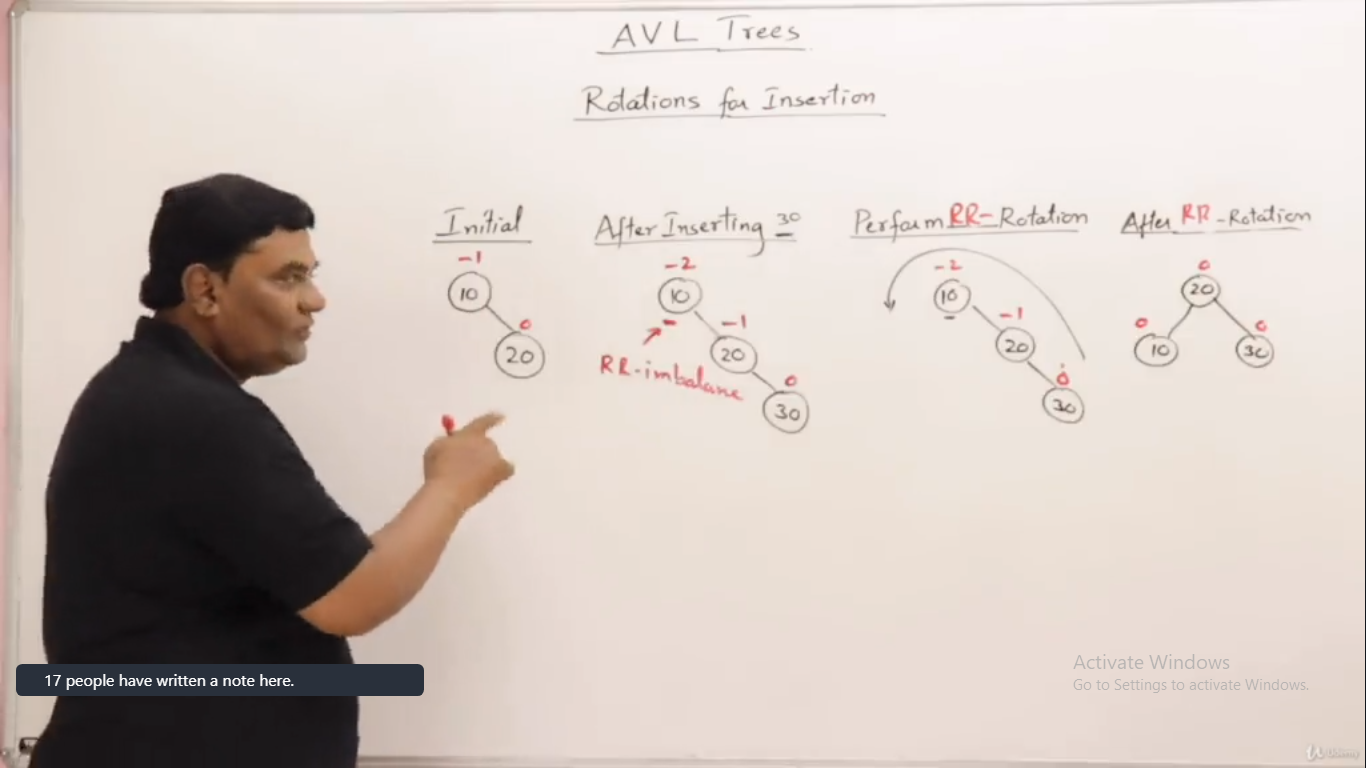 AVL Trees
Rotations for Insertion
Initial
-1
10
0
20
After Inserting 30
-2
10
-1
20
0
30
RR-imbalane
Perform RR-Rotation
-2
10
-1
20
0
30
After RR-Rotation
0
20
0
10
0
30
17 people have written a note here.
Activate Windows
Go to Settings to activate Windows.
Udemy